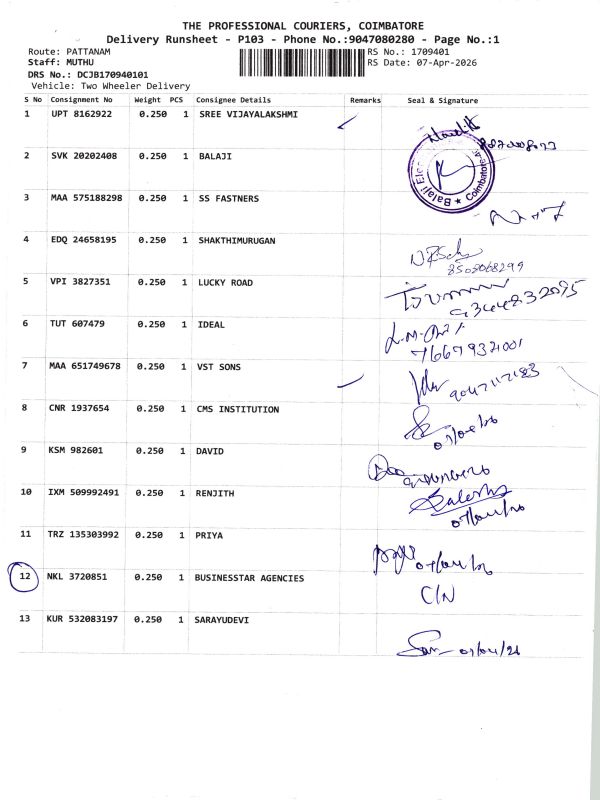 THE PROFESSIONAL COURIERS, COIMBATORE
Delivery Runsheet - P103 - Phone No.:9047080280 - Page No.:1
Route: PATTANAM
RS No.: 1709401
Staff: MUTHU
RS Date: 07-Apr-2026
DRS No.: DCJB170940101
Vehicle: Two Wheeler Delivery
S No Consignment No Weight PCS Consignee Details Remarks Seal & Signature
1 UPT 8162922 0.250 1 SREE VIJAYALAKSHMI
2 SVK 20202408 0.250 1 BALAJI
Balaji Coimbatore
3 MAA 575188298 0.250 1 SS FASTNERS
4 EDQ 24658195 0.250 1 SHAKTHIMURUGAN
8508068299
5 VPI 3827351 0.250 1 LUCKY ROAD
9344832095
6 TUT 607479 0.250 1 IDEAL
7 MAA 651749678 0.250 1 VST SONS
8 CNR 1937654 0.250 1 CMS INSTITUTION
9 KSM 982601 0.250 1 DAVID
10 IXM 509992491 0.250 1 RENJITH
11 TRZ 135303992 0.250 1 PRIYA
12 NKL 3720851 0.250 1 BUSINESSTAR AGENCIES
C/N
13 KUR 532083197 0.250 1 SARAYUDEVI
07/04/26